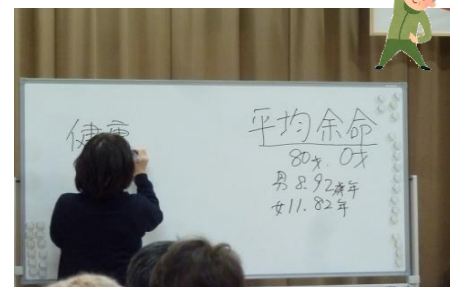 健康
平均余命
80才、0才
男 8.92年
女 11.82年